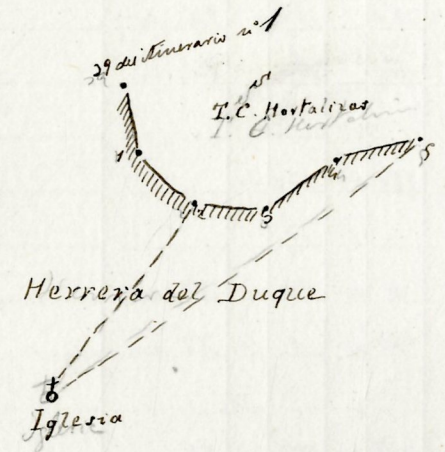 29 del itinerario nº 1
T. C. Hortalizas
1
2
3
4
5
Herrera del Duque
Iglesia